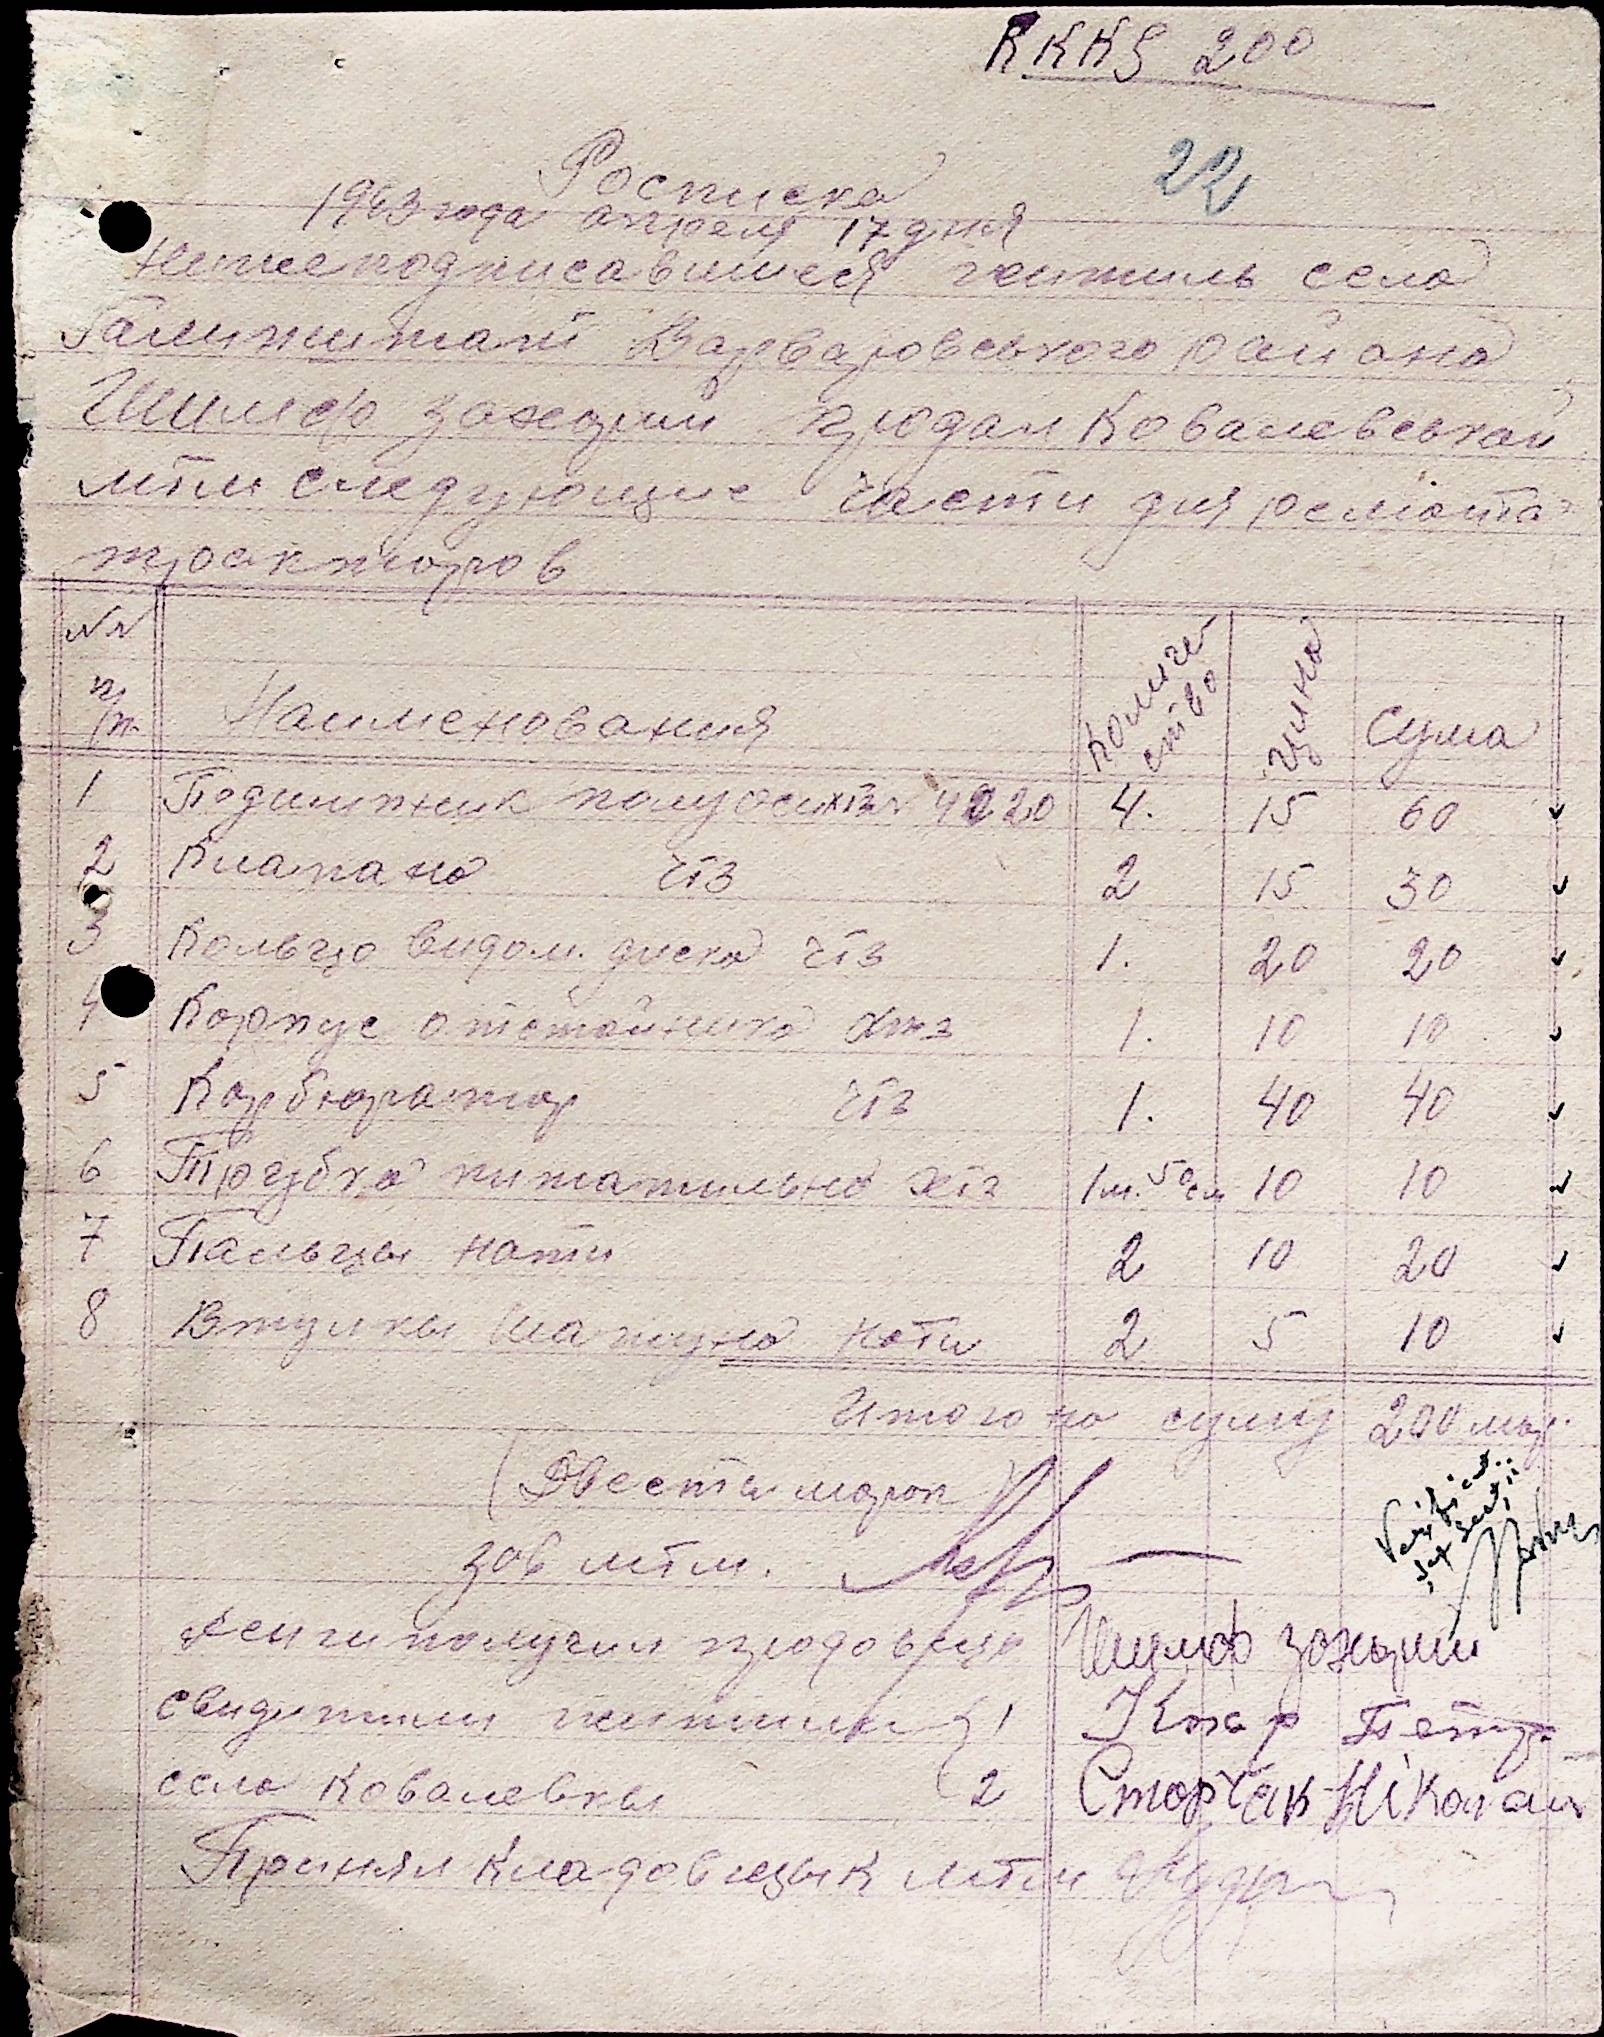 RKKS 200
22
Росписка
1943 года апреля 17 дня
Нижеподписавшиеся житиль села
Варваровського района
Шимф продал Ковалевськой
мтм следующие части для ремонта
тракторов
№ №
п/п. Наименования Количество Цина Сума
1 Подшипник полуоси хтз 4020 4. 15 60
2 Клапана чтз 2 15 30
3 Кольцо видом. диска чтз 1. 20 20
4 Корпус отстойника хтз 1. 10 10
5 Карбюратор чтз 1. 40 40
6 Трубка питатильна хтз 1 м. 50 см 10 10
7 Пальцы нати 2 10 20
8 Втулкы шатуна нати 2 5 10
Итого на суму 200 мар.
(Двести марок)
Verificat
зав мтм.
Денги получил продовец Шимф
Свидитили житили { 1 Петр
села Ковалевкы 2 СторчакНіколай
Принял кладовщык мтм